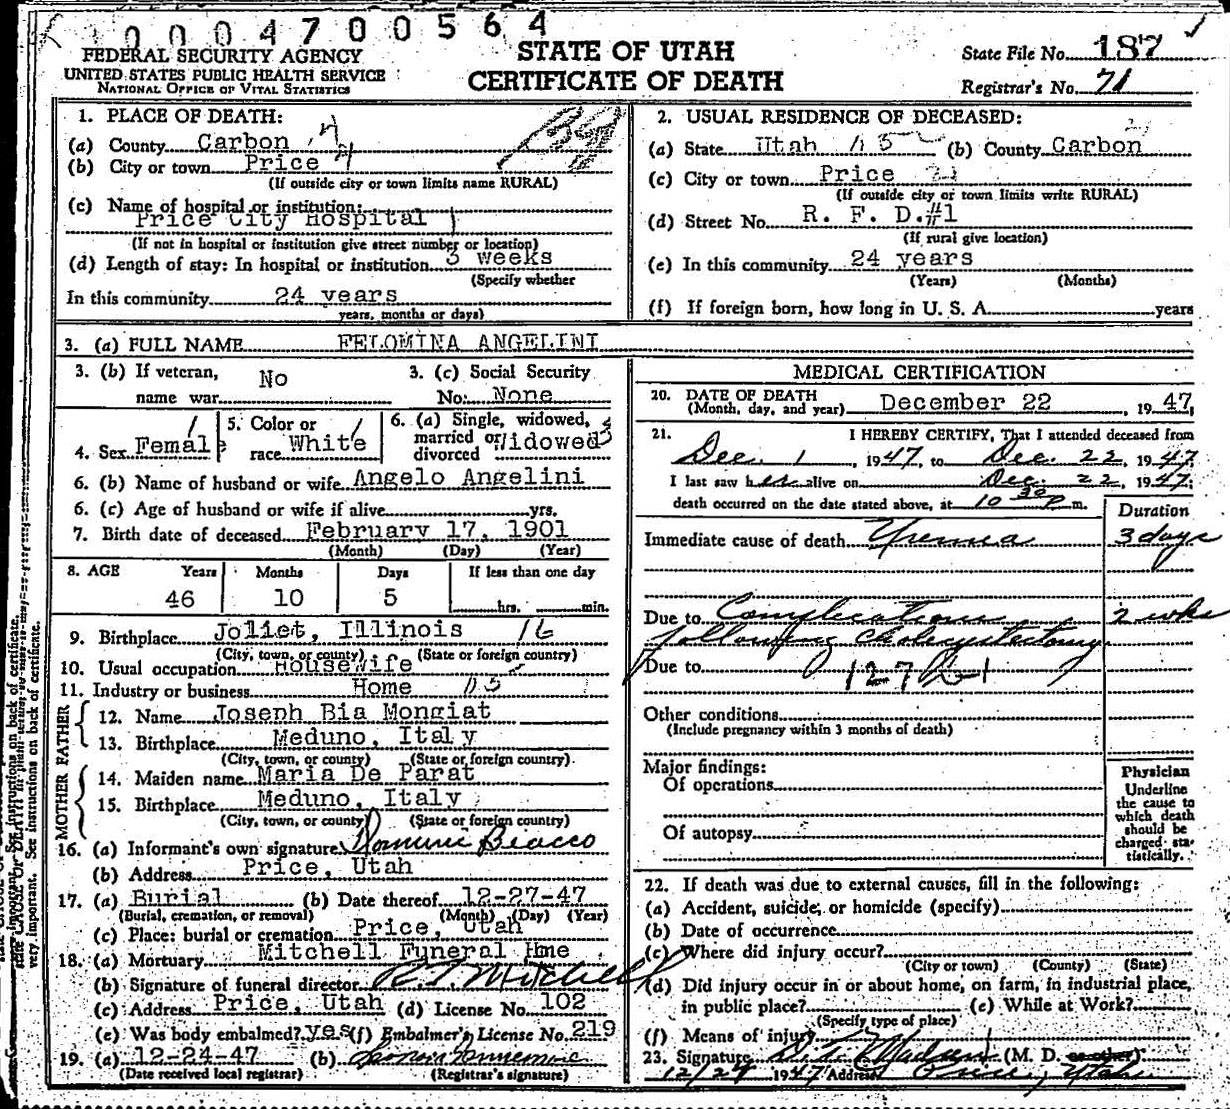 0004700564
FEDERAL SECURITY AGENCY
UNITED STATES PUBLIC HEALTH SERVICE
NATIONAL OFFICE OF VITAL STATISTICS
STATE OF UTAH
CERTIFICATE OF DEATH
State File No. 187
Registrar's No. 71
1. PLACE OF DEATH:
(a) County Carbon
(b) City or town Price
(If outside city or town limits name RURAL)
(c) Name of hospital or institution:
Price City Hospital
(If not in hospital or institution give street number or location)
(d) Length of stay: In hospital or institution 3 weeks
(Specify whether
In this community 24 years
years, months or days)
2. USUAL RESIDENCE OF DECEASED:
(a) State Utah (b) County Carbon
(c) City or town Price
(If outside city or town limits write RURAL)
(d) Street No. R. F. D.#1
(If rural give location)
(e) In this community 24 years
(Years) (Months)
(f) If foreign born, how long in U. S. A. years
3. (a) FULL NAME FELOMINA ANGELINI
3. (b) If veteran, name war No
3. (c) Social Security No. None
4. Sex Female
5. Color or race White
6. (a) Single, widowed, married or divorced Widowed
6. (b) Name of husband or wife Angelo Angelini
6. (c) Age of husband or wife if alive yrs.
7. Birth date of deceased February 17, 1901
(Month) (Day) (Year)
8. AGE Years Months Days If less than one day
46 10 5 hrs. min.
9. Birthplace Joliet, Illinois 16
(City, town, or county) (State or foreign country)
10. Usual occupation Housewife
11. Industry or business Home
FATHER
12. Name Joseph Bia Mongiat
13. Birthplace Meduno, Italy
(City, town, or county) (State or foreign country)
MOTHER
14. Maiden name Maria De Parat
15. Birthplace Meduno, Italy
(City, town, or county) (State or foreign country)
16. (a) Informant's own signature Dominic Biacco
(b) Address Price, Utah
17. (a) Burial (b) Date thereof 12-27-47
(Burial, cremation, or removal) (Month) (Day) (Year)
(c) Place: burial or cremation Price, Utah
18. (a) Mortuary Mitchell Funeral Hme
(b) Signature of funeral director Mitchell
(c) Address Price, Utah (d) License No. 102
(e) Was body embalmed? yes (f) Embalmer's License No. 219
19. (a) 12-24-47 (b)
(Date received local registrar) (Registrar's signature)
MEDICAL CERTIFICATION
20. DATE OF DEATH
(Month, day, and year) December 22, 1947
21. I HEREBY CERTIFY, That I attended deceased from
Dec. 1, 1947, to Dec. 22, 1947
I last saw her alive on Dec. 22, 1947.
death occurred on the date stated above, at 10 30 P m.
Duration
Immediate cause of death Uremia 3 days
Due to Complications 2 wks
following cholecystectomy
Due to
127
Other conditions
(Include pregnancy within 3 months of death)
Major findings:
Of operations
Of autopsy
Physician
Underline
the cause to
which death
should be
charged sta-
tistically.
22. If death was due to external causes, fill in the following:
(a) Accident, suicide, or homicide (specify)
(b) Date of occurrence
(c) Where did injury occur?
(City or town) (County) (State)
(d) Did injury occur in or about home, on farm, in industrial place,
in public place? (e) While at Work?
(Specify type of place)
(f) Means of injury
23. Signature (M. D. or other)
12/24 1947 Address Price, Utah
very important. See instructions on back of certificate.